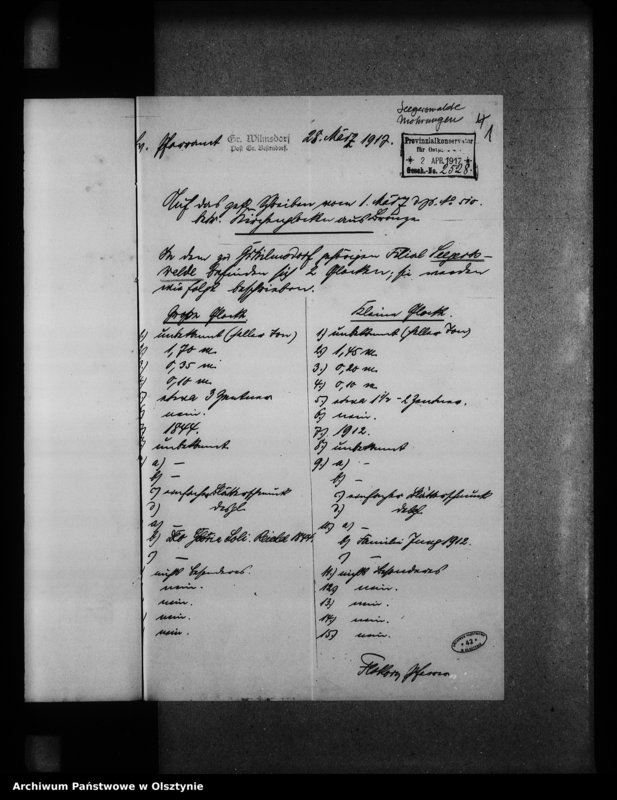 Seegerswalde
Mohrungen
4
1
Ev. Pfarramt Gr. Wilmsdorf 28. März 1917.
Post Gr. Bestendorf.
Provinzialkonservator
für Ostpr.
2 APR. 1917
Gesch.-No. 2528.
Auf das gefl. Schreiben vom 1. März No 510.
betr. Kirchenglocken aus Bronze
In dem zu Gr. Wilmsdorf gehörigen Filial Seegers-
walde befinden sich 2 Glocken, sie werden
wie folgt beschrieben.
Große Glocke
1) unbekannt (heller Ton)
2) 1,70 m.
3) 0,35 m
4) 0,10 m.
5) etwa 3 Zentner
6) nein.
7) 1844.
8) unbekannt
9) a) –
b) –
c) einfacher Blätterschmuck
d) desgl.
a) –
b) Deo Gloria Soli 1844.
c) –
nichts besonderes
nein.
nein.
nein.
nein.
Kleine Glocke.
1) unbekannt (heller Ton)
2) 1,45 m.
3) 0,20 m.
4) 0,10 m.
5) etwa 1½ - 2 Zentner.
6) nein.
7) 1912.
8) unbekannt
9) a) –
b) –
c) einfacher Blätterschmuck
d) desgl.
10) a) –
b) Familie Jung 1912.
c) –
11) nichts besonderes
12) nein.
13) nein.
14) nein.
15) nein.
42
Pfarrer
Archiwum Państwowe w Olsztynie